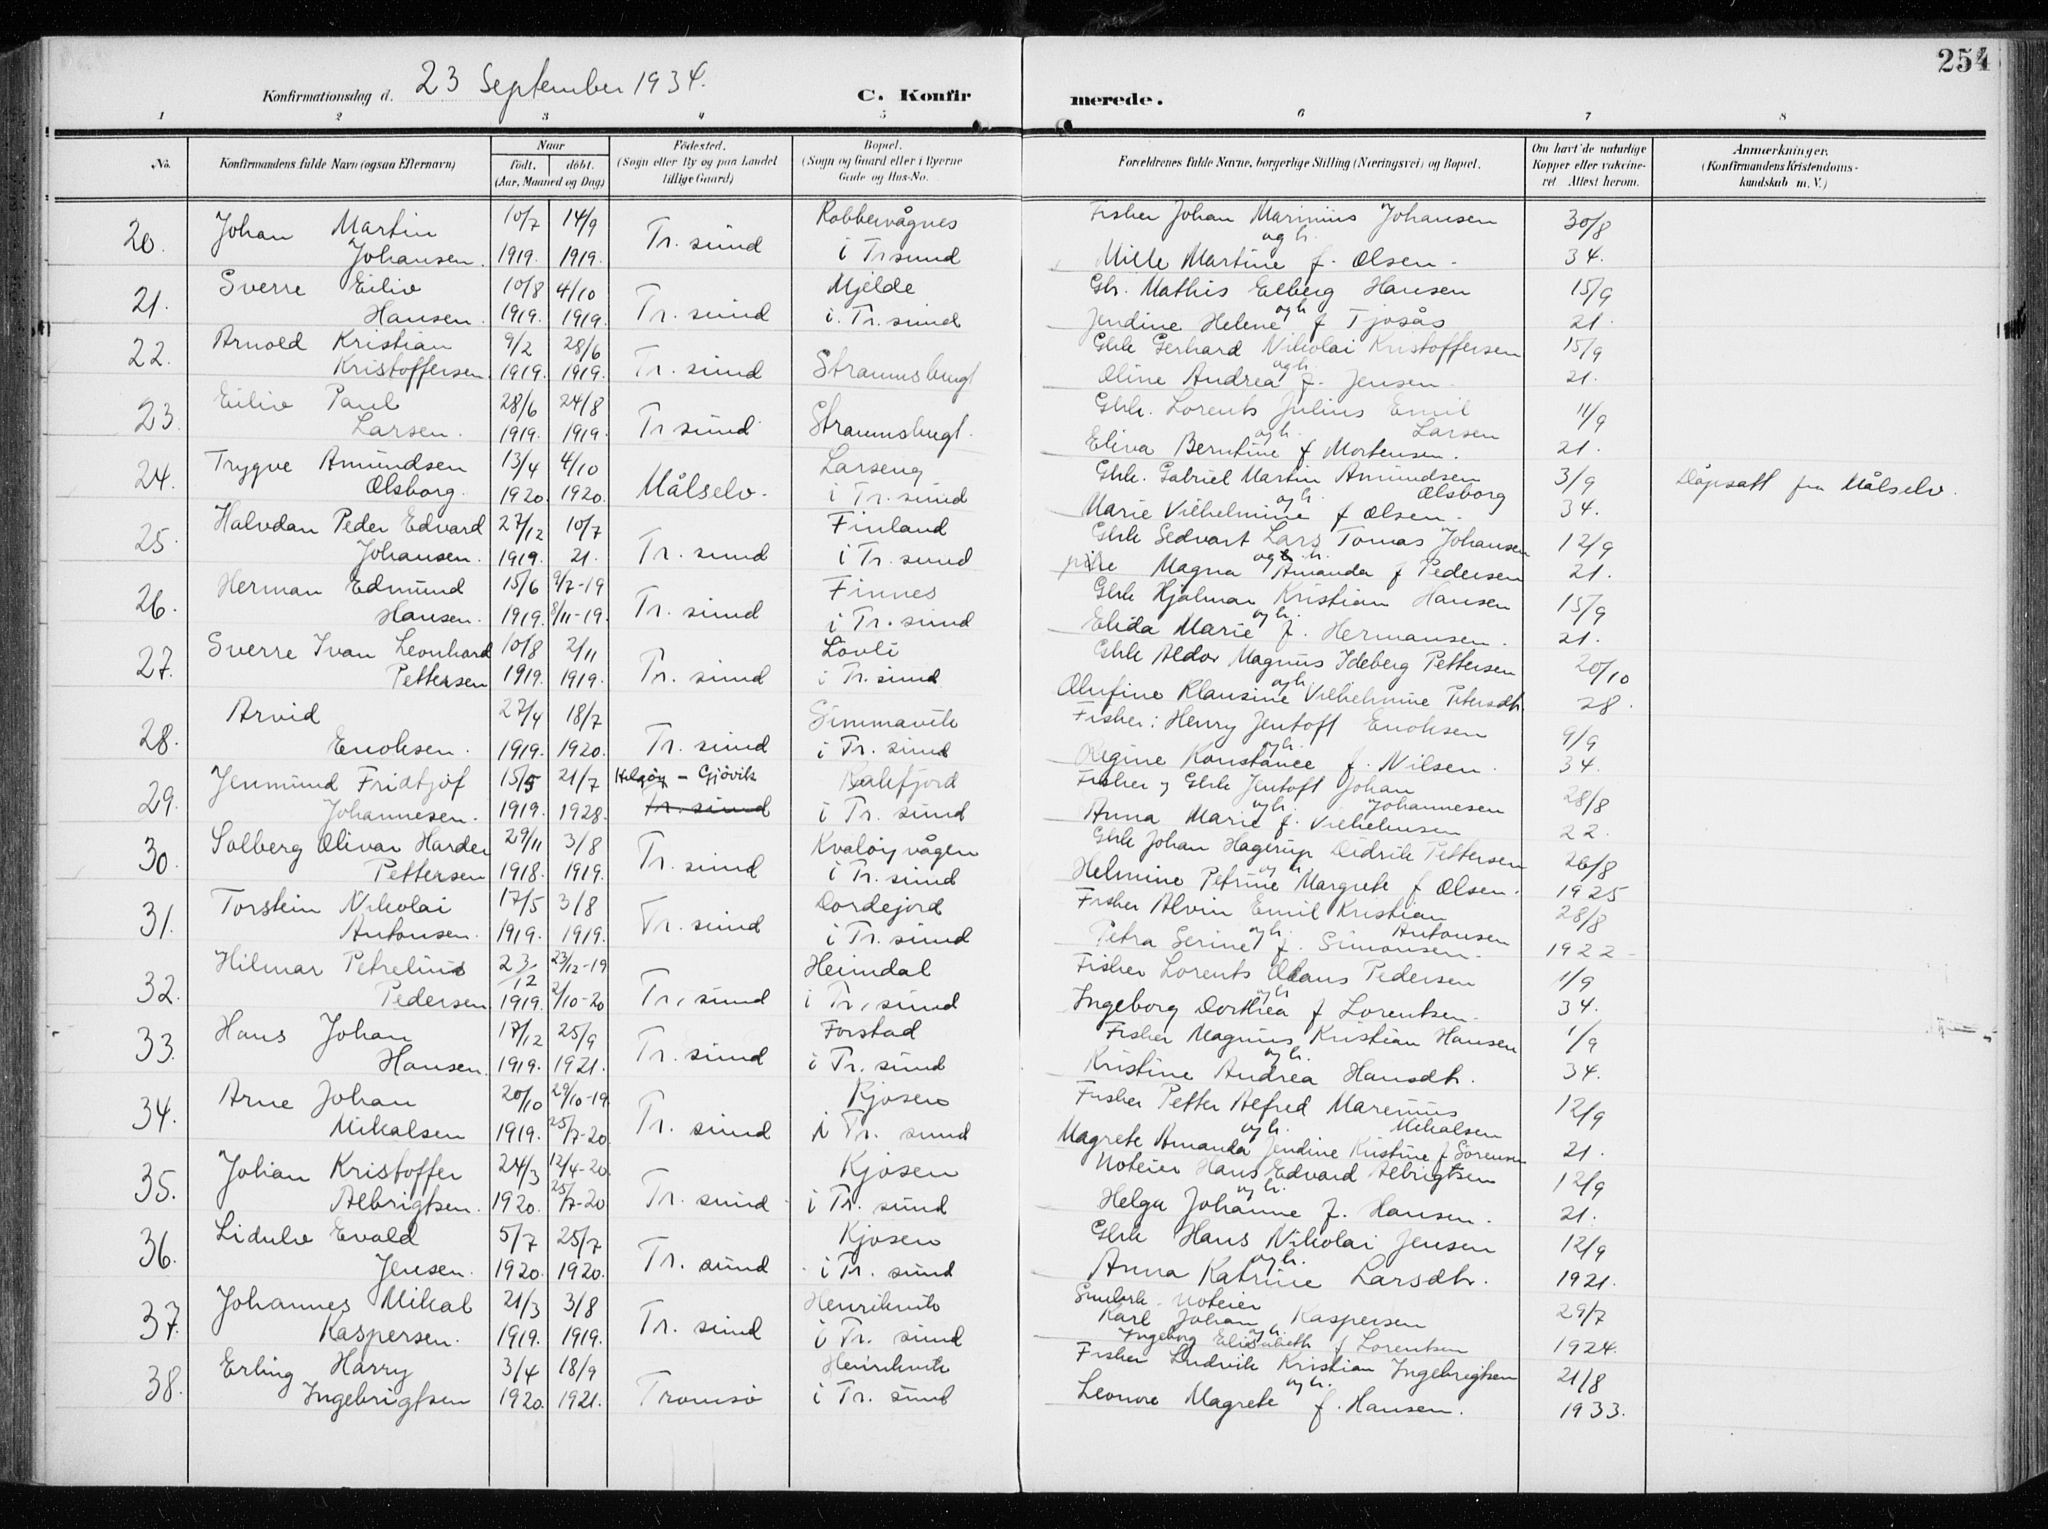 254
Konfirmationsdag d. 23 September 1934.
C. Konfirmerede.
1 2 3 4 5 6 7 8
No. Konfirmandens fulde Navn (ogsaa Efternavn) Naar født. døbt. (Aar, Maaned og Dag) Fødested. (Sogn eller By og paa Landet tillige Gaard) Bopæl. (Sogn og Gaard eller i Byerne Gade og Hus-No. Forældrenes fulde Navne, borgerlige Stilling (Næringsvei) og Bopæl. Om havt de naturlige Kopper eller vaccineret Attest herom. Anmærkninger. (Konfirmandens Kristendomskundskab m. V.)
20. Johan Martin 10/7 14/9 Tr. sund Robbervågnes Fisker Johan Marinius Johansen 30/8
og h.
Johansen. 1919. 1919. i Tr sund Mille Martine f. Olsen. 34.
21. Sverre Eiliv 10/8 4/10 Tr. sund Mjelde Gbr. Mathis Elberg Hansen 15/9
og h.
Hansen. 1919. 1919. i Tr. sund Jendine Helene f Tjosås 21.
22. Arnold Kristian 9/2 28/6 Tr. sund Straumsbugt Gbrk Gerhard Nikolai Kristoffersen 15/9
og h.
Kristoffersen. 1919. 1919. Oline Andrea f. Jensen. 21.
23. Eiliv Paul 28/6 24/8 Tr sund Straumsbugt. Gbrk. Lorents Julius Emil Larsen 11/9
og h.
Larsen. 1919. 1919. Eliva Berntine f Mortensen. 21.
24. Trygve Amundsen 13/4 4/10 Målselv. Larseng Gbrk. Gabriel Martin Amundsen Olsborg 3/9 Dåpsatt fra Målselv.
og h.
Olsborg. 1920. 1920. i Tr. sund Marie Vilhelmine f Olsen. 34.
25. Halvdan Peder Edvard 27/12 10/7 Tr. sund Finland Gbrk Sedvart Lars Tomas Johansen 12/9
og h.
Johansen. 1919. 21. i Tr. sund pike Magna Amanda f Pedersen 21.
26. Herman Edmund 15/6 9/7-19 Tr. sund Finnes Gbrk Hjalmar Kristian Hansen 15/9
og h.
Hansen. 1919. 8/11-19. i Tr. sund Elida Marie f. Hermansen. 21.
27. Sverre Ivan Leonhard 10/8 2/11 Tr. sund Lövli Gbrk Aldor Magnus Ideberg Pettersen 20/10
og h.
Pettersen 1919. 1919. i Tr. sund Olufine Klausine Vilhelmine Petersdtr. 28.
28. Arvid 27/4 18/7 Tr. sund Simmavik Fisker: Henry Jentoft Enoksen 9/9
og h.
Enoksen. 1919. 1920. i Tr. sund Regine Konstance f. Nilsen. 34.
29. Jenmund Fridtjof 15/5 21/7 Helgøy – Gjövik Kalefjord Fisker og Gbrk Jentoft Johan Johannesen 28/8
og h.
Johannesen. 1919. 1928. Tr. sund i Tr. sund Anna Marie f. Vilhelmsen 22.
30. Solberg Olivar Harder 29/11 3/8 Tr. sund Kvalöyvågen Gbrk Johan Hagerup Didrik Pettersen 26/8
og h
Pettersen 1918. 1919. i Tr. sund Helmine Petrine Margrete f Olsen. 1925
31. Torstein Nikolai 17/5 3/8 Tr. sund Dordejord Fisker Alvin Emil Kristian Antonsen 28/8
og h.
Antonsen. 1919. 1919. i Tr. sund Petra Serine f. Simonsen. 1922
32. Hilmar Petrelius 23/12 23/12-19 Tr. sund Heimdal Fisker Lorents Claus Pedersen 1/9
og h
Pedersen 1919. 2/10-20 i Tr. sund Ingeborg Dorthea f Lorentsen. 34.
33. Hans Johan 17/12 25/9 Tr. sund Forstad Fisker Magnus Kristian Hansen 1/9
og h.
Hansen. 1919. 1921. i Tr. sund Kristine Andrea Hansdtr. 34.
34. Arne Johan 20/10 29/10-19. Tr. sund Kjosen Fisker Petter Alfred Marenius Mikalsen 12/9
og h.
Mikalsen 1919. 25/7-20. i Tr. sund Magrete Amanda Jendine Kristine f Sörensen 21.
35. Johan Kristoffer 24/3 12/4-20 Tr. sund Kjosen Noteier Hans Edvard Albrigtsen 12/9
og h.
Albrigtsen. 1920. 25/7-20 i Tr. sund Helga Johanne f. Hansen. 21.
36. Lidulv Evald 5/7 25/7 Tr. sund Kjosen Gbrk Hans Nikolai Jensen 12/9
og h.
Jensen. 1920. 1920. i Tr. sund Anna Katrine Larsdtr. 1921.
37. Johannes Mikal 21/3 3/8 Tr. sund Henrikvik Noteier Karl Johan Kaspersen 29/7
og h.
Kaspersen. 1919. 1919. i Tr. sund Ingeborg Elisabeth f Lorentsen 1924.
38. Erling Harry 3/4 18/9 Tromsö Henrikvik Fisker Ludvik Kristian Ingebrigtsen 21/8
og h.
Ingebrigtsen 1920. 1921. i Tr. sund Leonore Magrete f. Hansen. 1933.